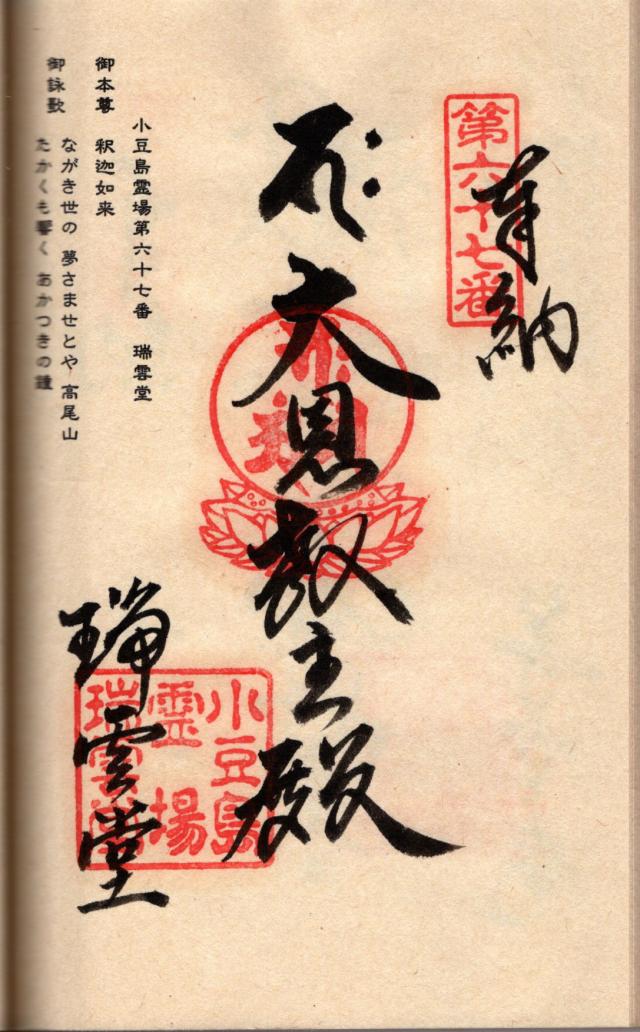 第六十七番
奉納
大恩教主殿
小豆島
霊場
瑞雲堂
瑞雲堂
小豆島霊場第六十七番 瑞雲堂
御本尊 釈迦如来
御詠歌 ながき世の 夢さませとや 高尾山
たかくも響く あかつきの鐘